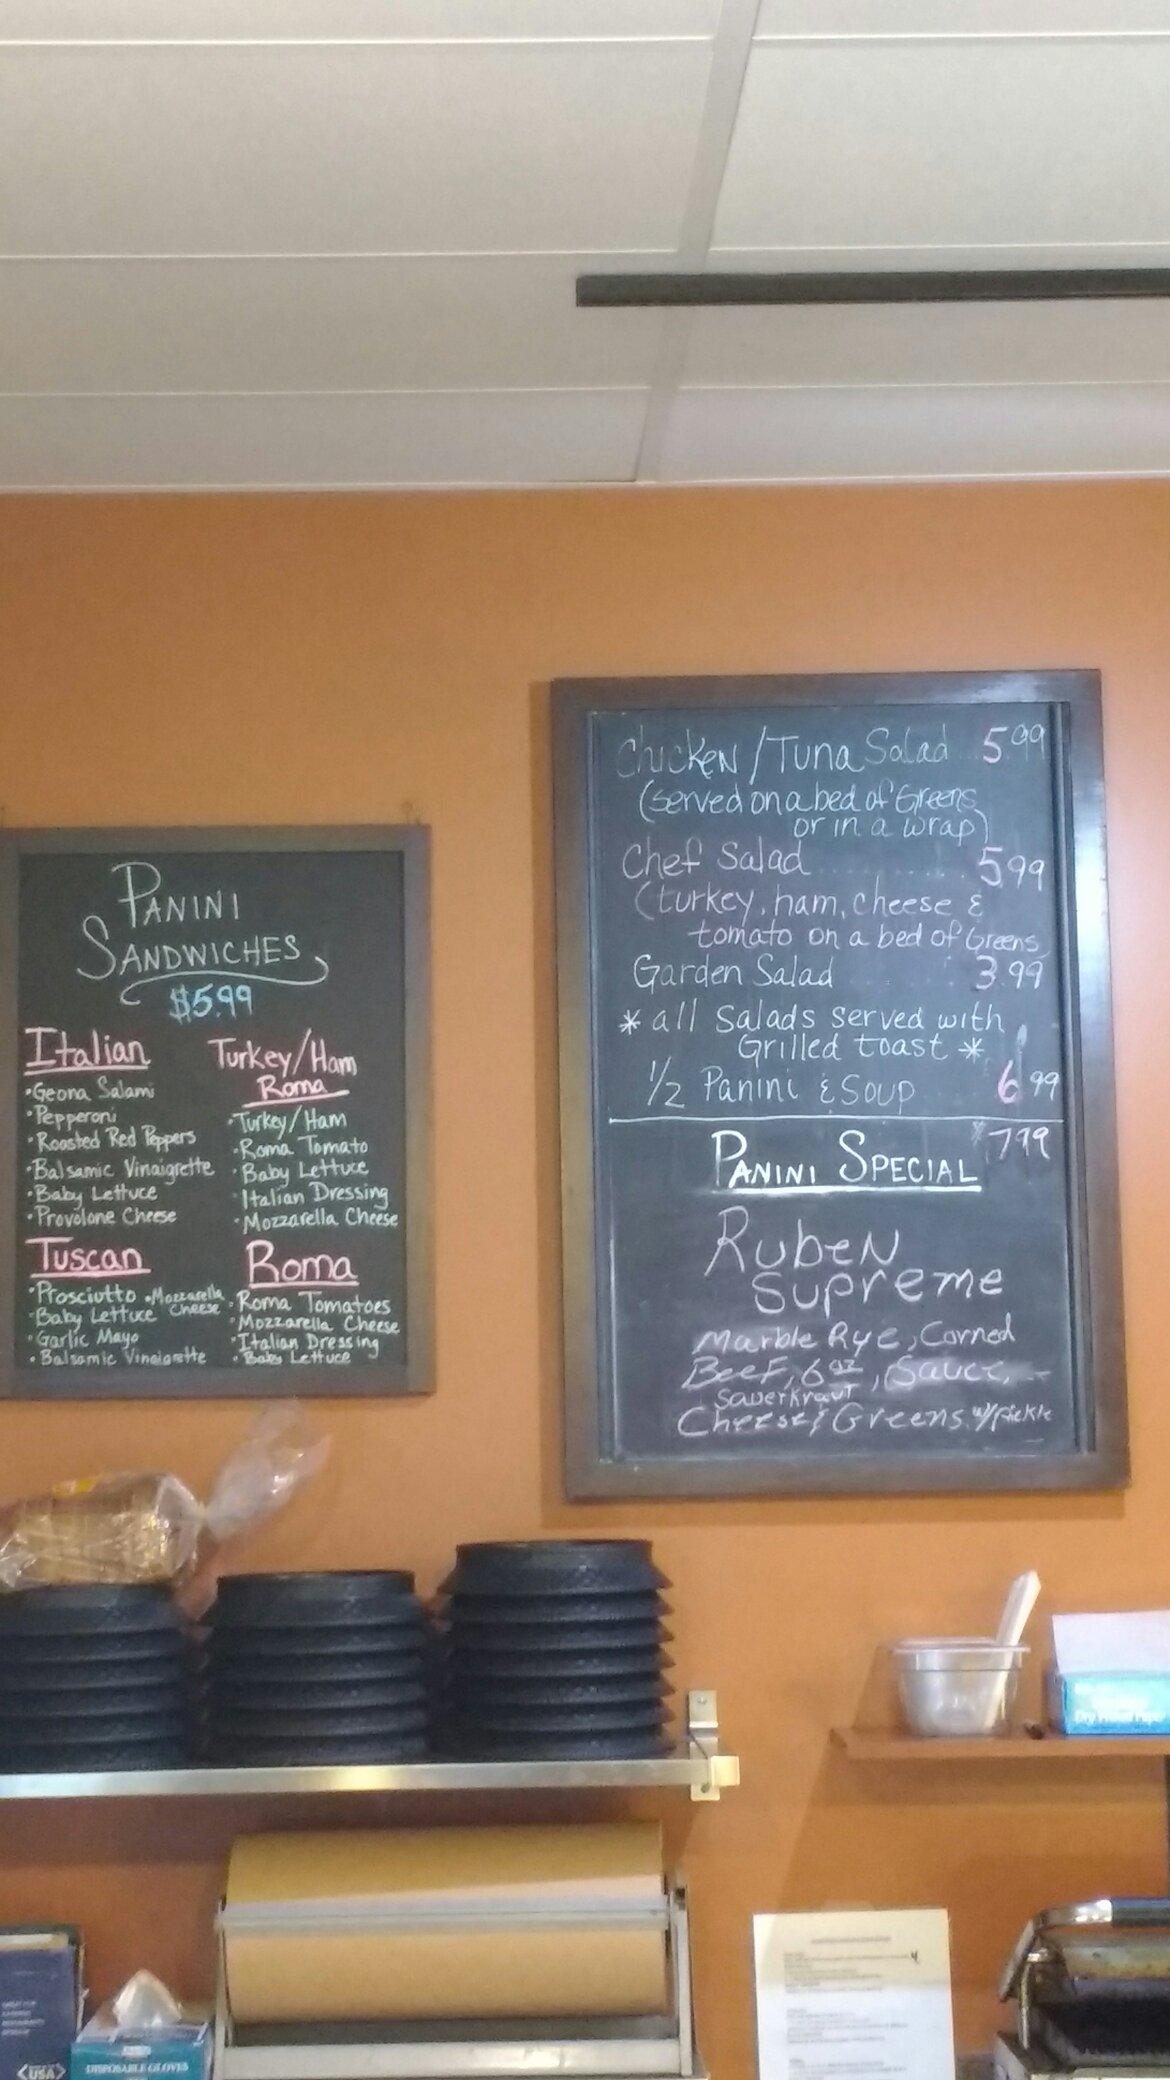 PANINI
SANDWICHES
$5.99
Italian
•Geona Salami
•Pepperoni
•Roasted Red Peppers
•Balsamic Vinaigrette
•Baby Lettuce
•Provolone Cheese
Turkey/Ham
Roma
•Turkey/Ham
•Roma Tomato
•Baby Lettuce
•Italian Dressing
•Mozzarella Cheese
Tuscan
•Prosciutto •Mozzarella
•Baby Lettuce Cheese
•Garlic Mayo
•Balsamic Vinaigrette
Roma
•Roma Tomatoes
•Mozzarella Cheese
•Italian Dressing
•Baby Lettuce
Chicken/Tuna Salad 5.99
(served on a bed of Greens
or in a wrap)
Chef Salad 5.99
(turkey, ham, cheese &
tomato on a bed of Greens)
Garden Salad 3.99
* all Salads served with
Grilled toast *
1/2 Panini & Soup 6.99
$7.99
PANINI SPECIAL
Ruben
Supreme
Marble Rye, Corned
Beef, 6oz, Sauce,
Sauerkraut
Cheese & Greens w/pickle
USA
DISPOSABLE GLOVES